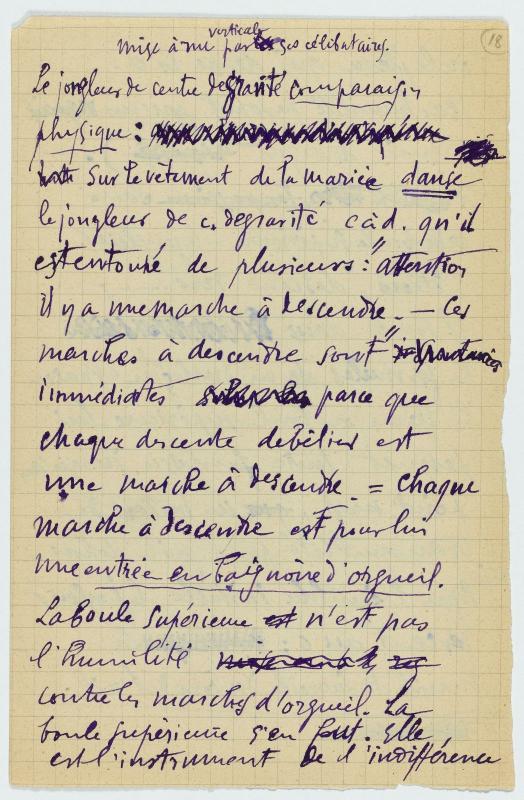 18
verticale
mise à nu par les ses célibataires.
Le jongleur de centre de gravité comparaison
physique :
Sur le vêtement de la mariée danse
le jongleur de c. de gravité c à d. qu'il
est entouré de plusieurs : "attention
il y a une marche à descendre. — Ces
marches à descendre sont"
immédiates parce que
chaque descente de bélier est
une marche à descendre. = chaque
marche à descendre est pour lui
une entrée en baignoire d'orgueil.
La Boule Supérieure est n'est pas
l'humilité
contre les marches d'orgueil. La
boule supérieure s'en fout. Elle
est l'instrument de l'indifférence